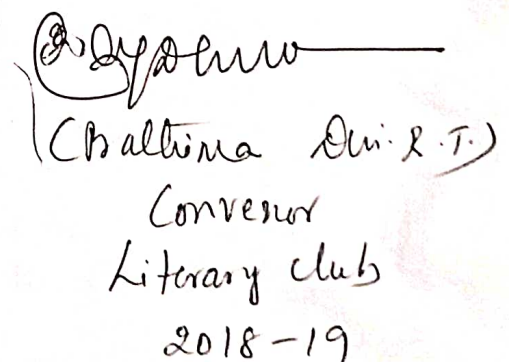 (Balbina Devi. R. T.)
Convenor
Literary club
2018-19